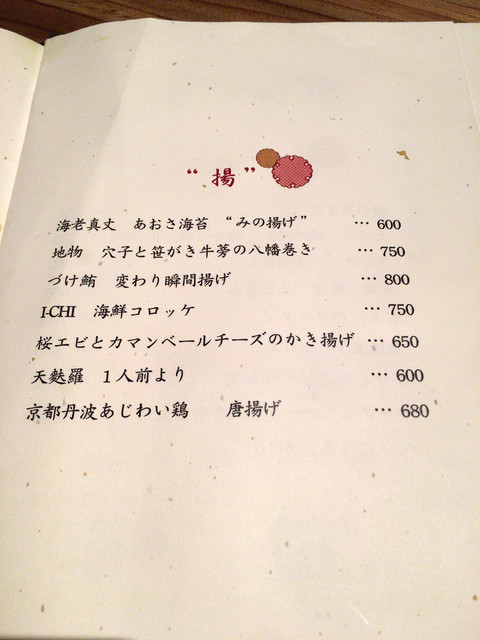 “揚”
海老真丈　あおさ海苔　“みの揚げ”　… 600
地物　穴子と笹がき牛蒡の八幡巻き　… 750
づけ鮪　変わり瞬間揚げ　… 800
I-CHI　海鮮コロッケ　… 750
桜エビとカマンベールチーズのかき揚げ　… 650
天麩羅　１人前より　… 600
京都丹波あじわい鶏　唐揚げ　… 680